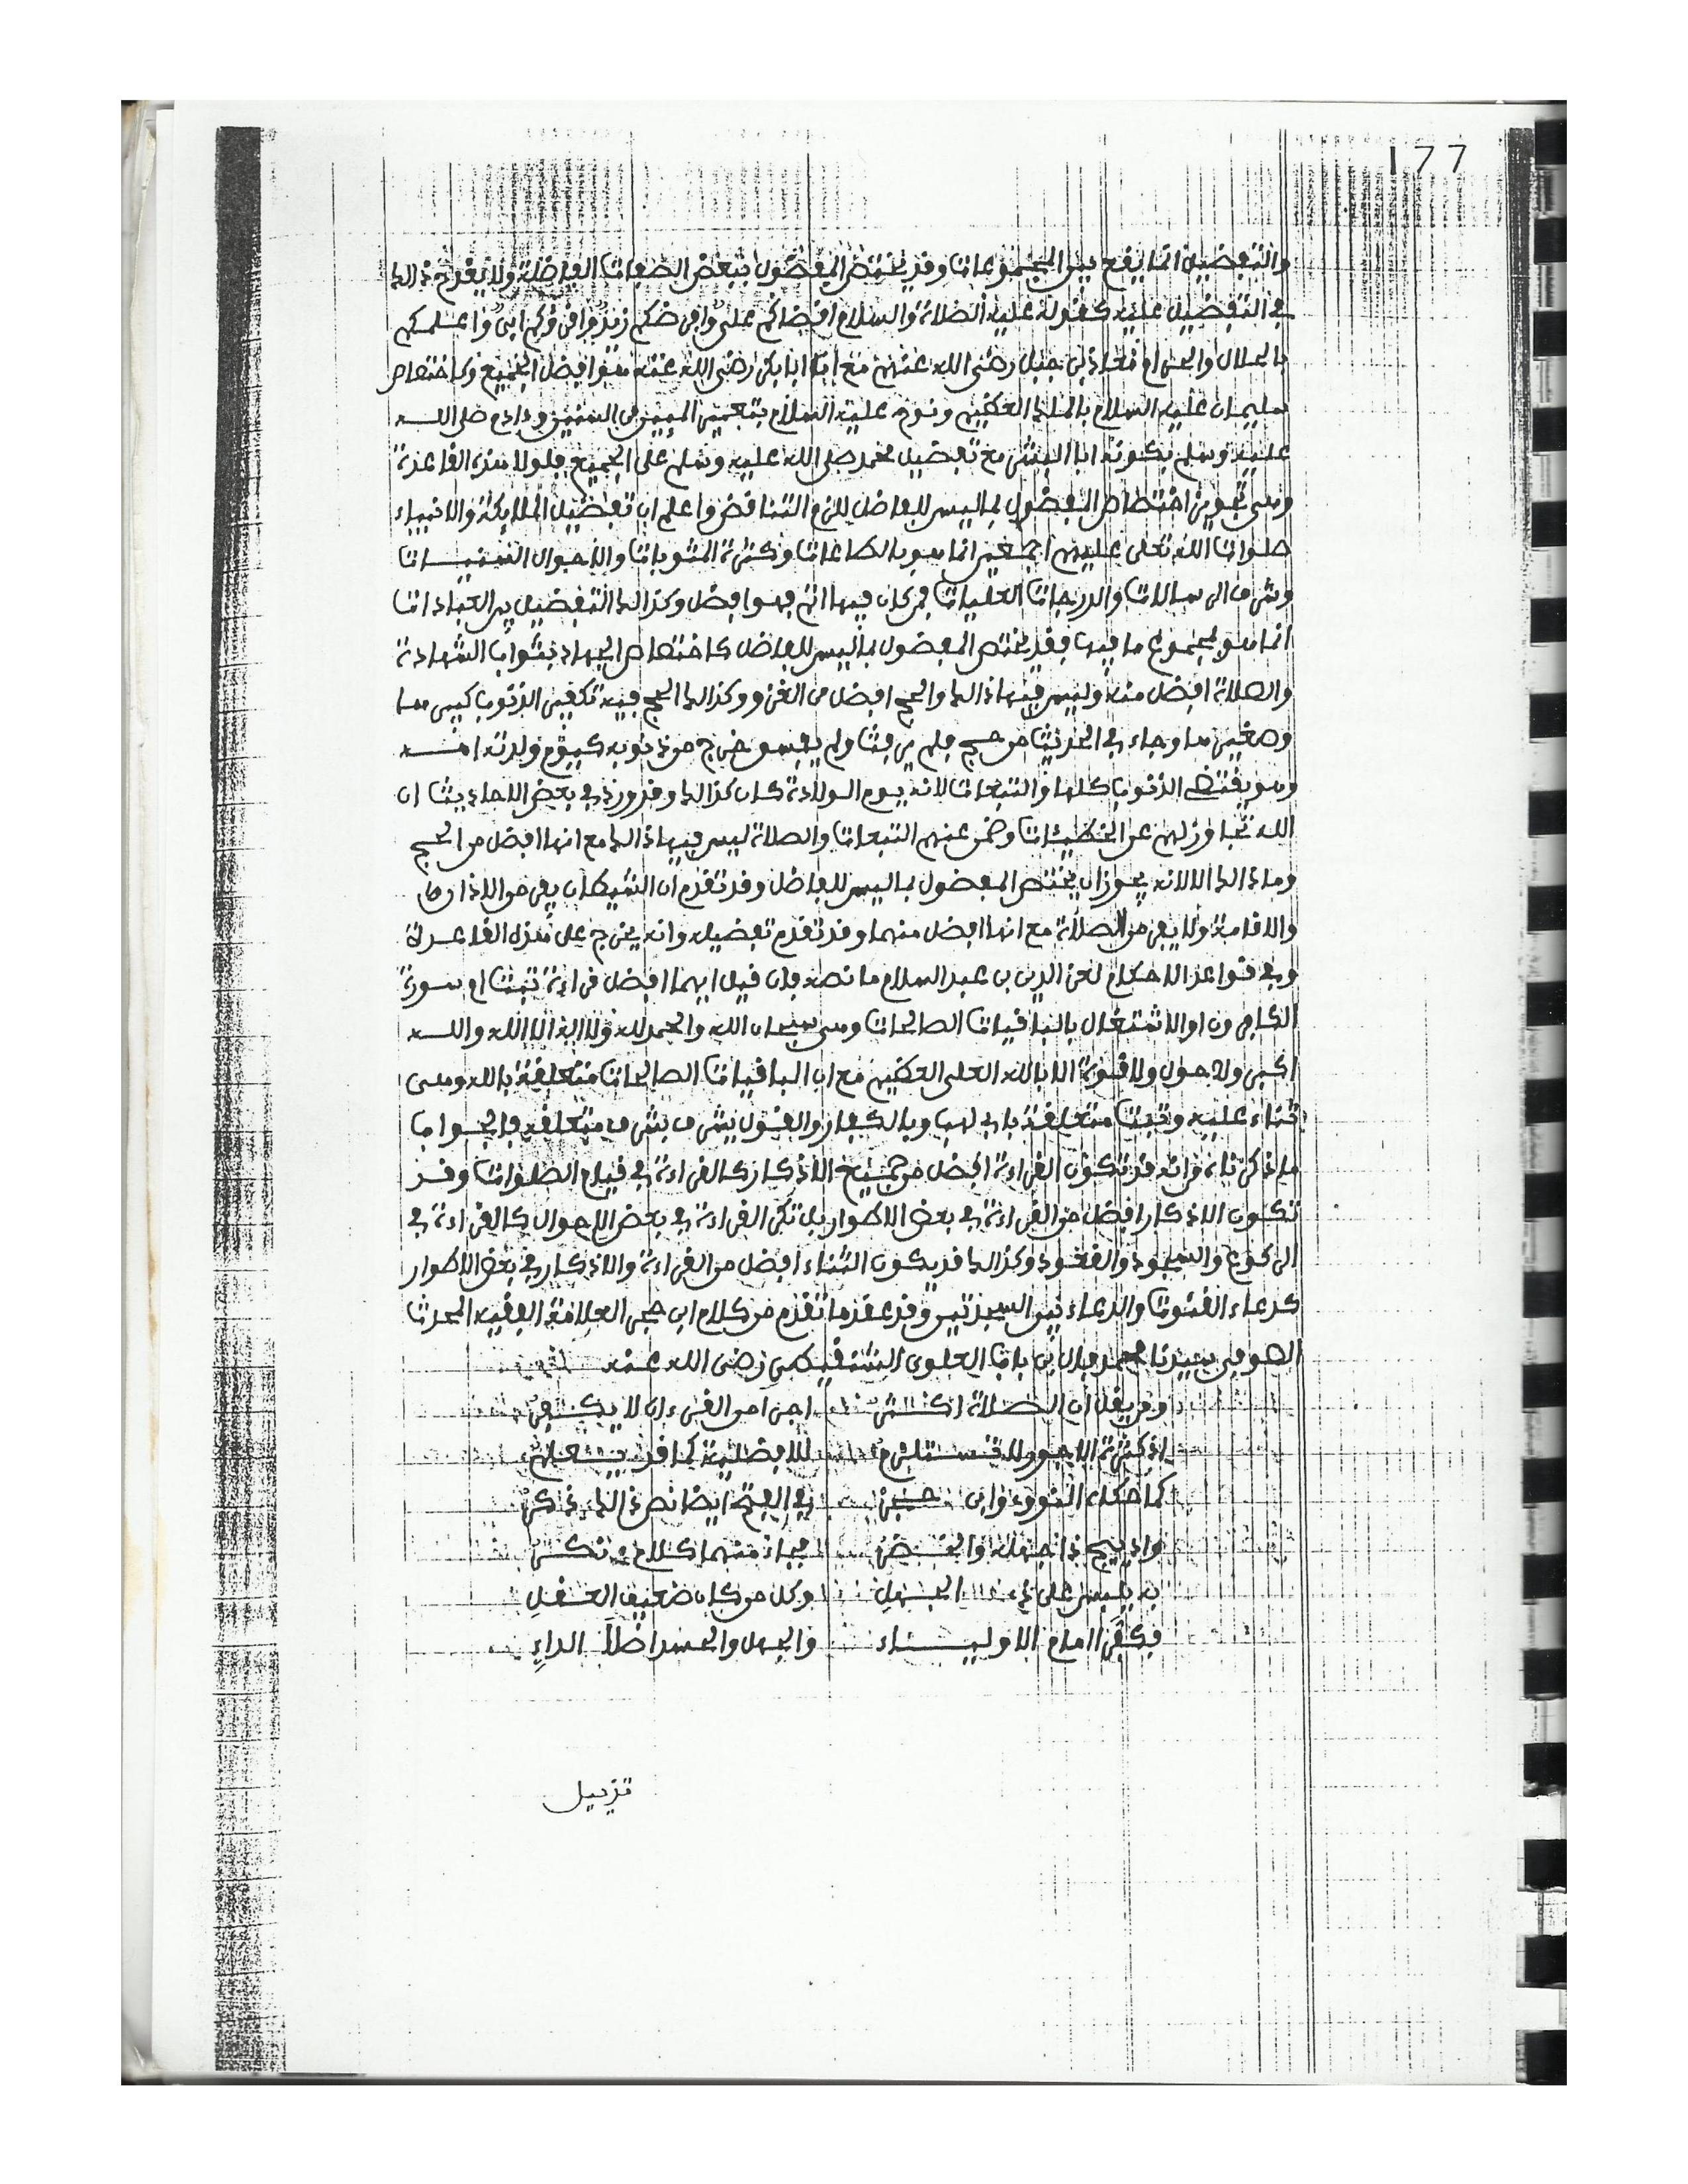 177
والتفضيل انما يقع بين المجموعات وقد يختص المفضول ببعض الصفات الفاضلة ولا يقدح ذالك
في التفضيل عليه كقوله عليه الصلاة والسلام اقضاكم علي وافرضكم زيد واقرؤكم ابي واعلمكم
بالحلال والحرام معاذ بن جبل رضي الله عنهم مع ان ابا بكر رضي الله عنه هو افضل الجميع وكاختصاص
سليمان عليه السلام بالملك العظيم ونوح عليه السلام بتعمير المييـن من السنين وءادم صلى الله
عليه وسلم بكونه ابا البشر مع تفضيل محمد صلى الله عليه وسلم على الجميع فلولا هذه القاعدة
وهي تجويز اختصاص المفضول بما ليس للفاضل للزم التناقض واعلم ان تفضيل الملايكة والانبياء
صلوات الله تعلى عليهم اجمعين انما هو بالطاعات وكثرة المثوبات والاحوال السنيـات
وشرف الرسالات والدرجات العليات فمن كان فيها اتم فهو افضل وكذالك التفضيل بين العبادات
انما هو لمجموع ما فيها فقد يختص المفضول بما ليس للفاضل كاختصاص الجهاد بثواب الشهادة
والصلاة افضل منه وليس فيها ذالك والحج افضل من الغزو وكذالك الحج فيه تكفير الذنوب كبيرها
وصغيرها وجاء في الحديث من حج فلم يرفث ولم يفسق خرج من ذنوبه كيوم ولدته امـه
وهو يقتضي الذنوب كلها والتبعات لانه يوم الولادة كان كذالك وقد ورد في بعض الاحاديث ان
الله تجاوز لهم عن الخطيئات وضمن عنهم التبعات والصلاة ليس فيها ذالك مع انها افضل من الحج
وما ذالك الا لانه يجوز ان يختص المفضول بما ليس للفاضل وقد تقدم ان الشيطان يفر من الاذان
والاقامة ولا يفر من الصلاة مع انها افضل منهما وقد تقدم تفضيله وانه يخرج على هذه القاعدة
وفي قواعد الاحكام لعز الدين بن عبد السلام ما نصه فان قيل ايهما افضل قراءة تبت او سورة
الكافرون او الاشتغال بالباقيات الصالحات وهي سبحان الله والحمد لله ولا اله الا الله والله
اكبر ولا حول ولا قوة الا بالله العلي العظيم مع ان الباقيات الصالحات متعلقة بالله وهي
ثناء عليه وتبت متعلقة بابي لهب وبالكفار والقول يشرف بشرف متعلقه فالجواب
ما ذكرناه قد تكون القراءة افضل من جميع الاذكار كالقراءة في قيام الصلوات وقد
تكون الاذكار افضل من القراءة في بعض الاطوار بل تكره القراءة في بعض الاحوال كالقراءة في
الركوع والسجود والقعود وكذالك قد يكون الثناء افضل من القراءة والاذكار في بعض الاطوار
كدعاء القنوت والدعاء بين السجدتين وقد عقد ما تقدم من كلام ابن حجر العلامة الفقيه المحدث
الصوفي سيدنا محمد فال بن باب العلوي الشنقيطي رضي الله عنه
ومن يقل ان الصلاة اكثر اجرا من القرءان لا يكفر
اذ كثرة الاجور لا تستلزم للافضلية كما قد يعلم
كما حكاه النووي وابن حجر في الفتح ايضا نص ذالك ذكر
واذ يجي ذا جهله
به يلبس على ذي الجهل وكل من كان ضعيف العقل
فكفرا امام الاولياء والجهل والحسد اصل الداء
تذييل